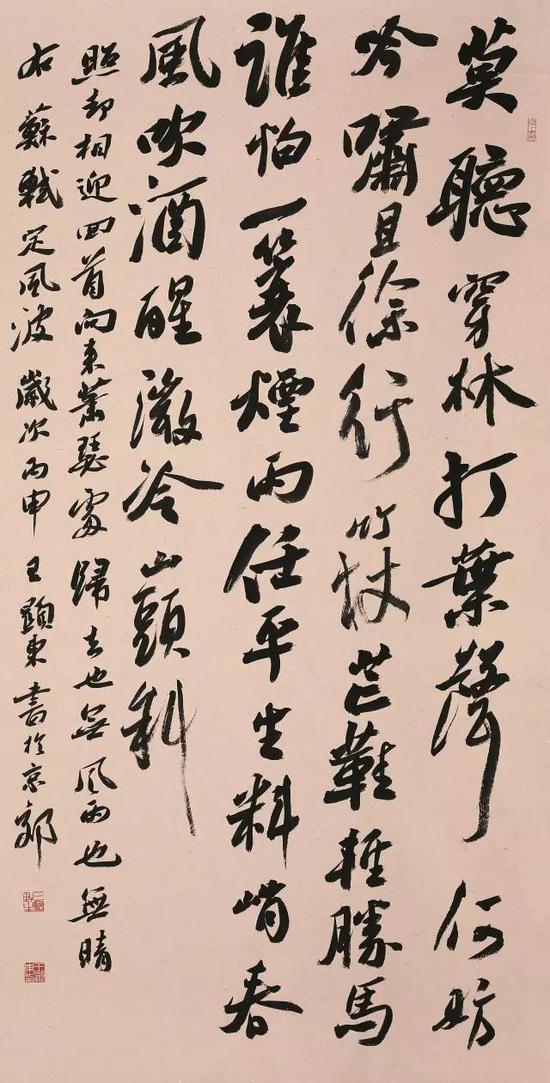 莫聽穿林打葉聲何妨
吟嘯且徐行竹杖芒鞋輕勝馬
誰怕一蓑煙雨任平生料峭春
風吹酒醒微冷山頭斜
照却相迎回首向來蕭瑟處歸去也無風雨也無晴
右蘇軾定風波歲次丙申王顕東書於京郊